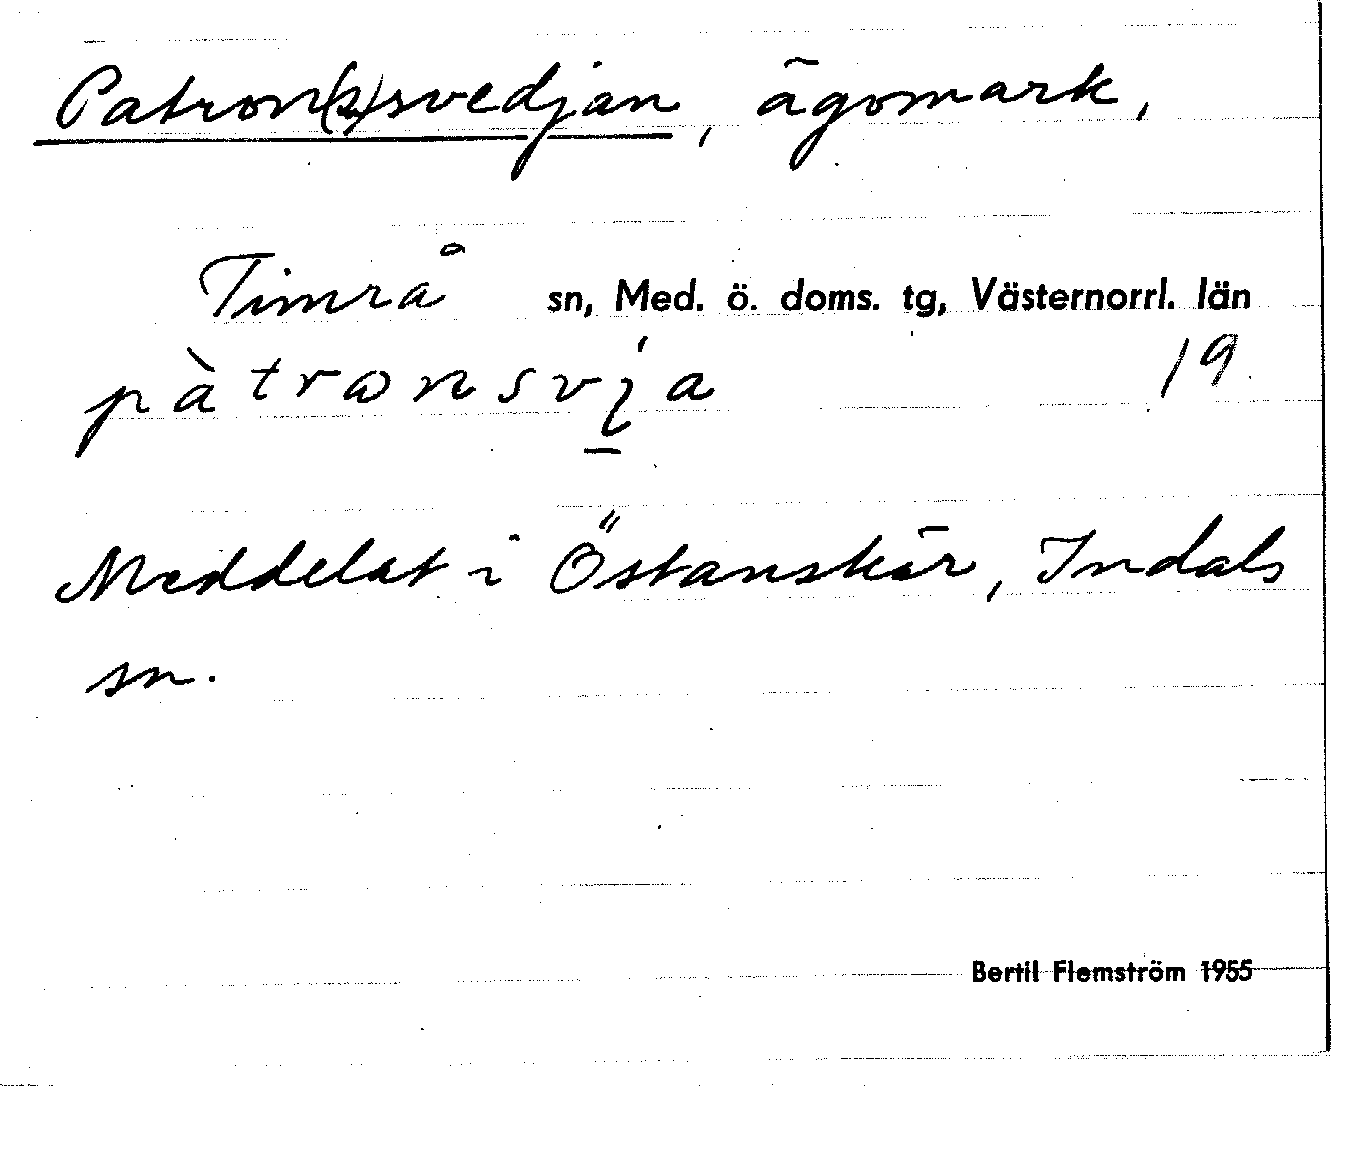 Patron(s)svedjan, ägomark,
Timrå sn, Med. ö. doms. tg, Västernorrl. län
pàtrωnsvı̨́a 19.
Meddelat i Östanskär, Indals
sn.
Bertil Flemström 1955